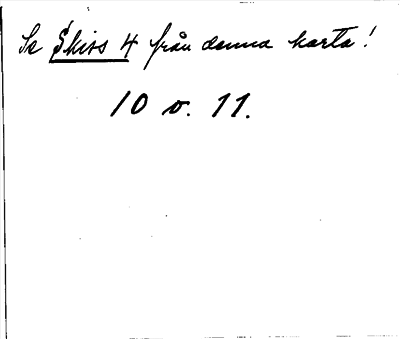 Se Skiss 4 från denna karta!
10 v. 11.